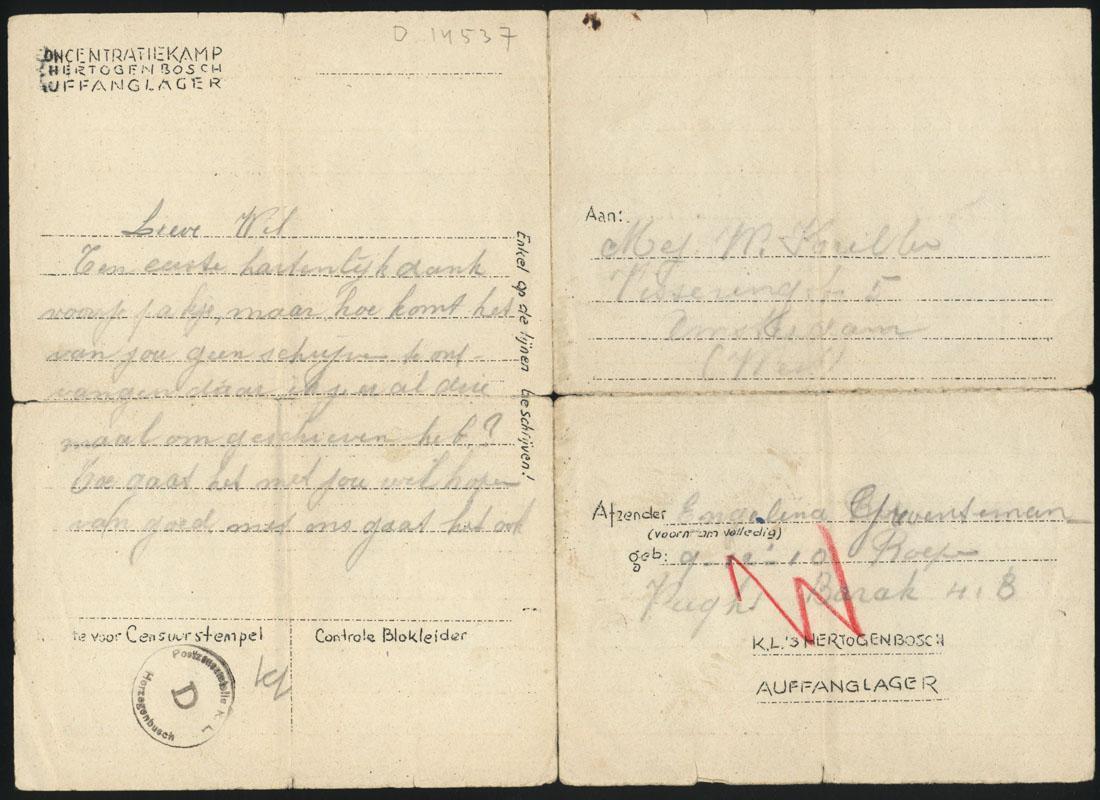 D 14537
ONCENTRATIEKAMP
HERTOGENBOSCH
UFFANGLAGER
Lieve Wil
Ten eerste hartenlijk dank
voor je pakje, maar hoe komt het
van jou geen schrijven te ont-
vangen daar ik je er al drie
maal om geschreven heb?
Hoe gaat het met jou wil hopen
van goed met ons gaat het ook
Enkel op de lijnen beschrijven!
te voor Censuurstempel
Controle Blokleider
Postzensurstelle K. L.
D
Herzogenbusch
Aan:
Mej. W.
5
Amsterdam
(West)
Afzender Engelina
(voornaam volledig)
geb:
Vught Barak 4.B
W
K.L.'S HERTOGENBOSCH
AUFFANGLAGER